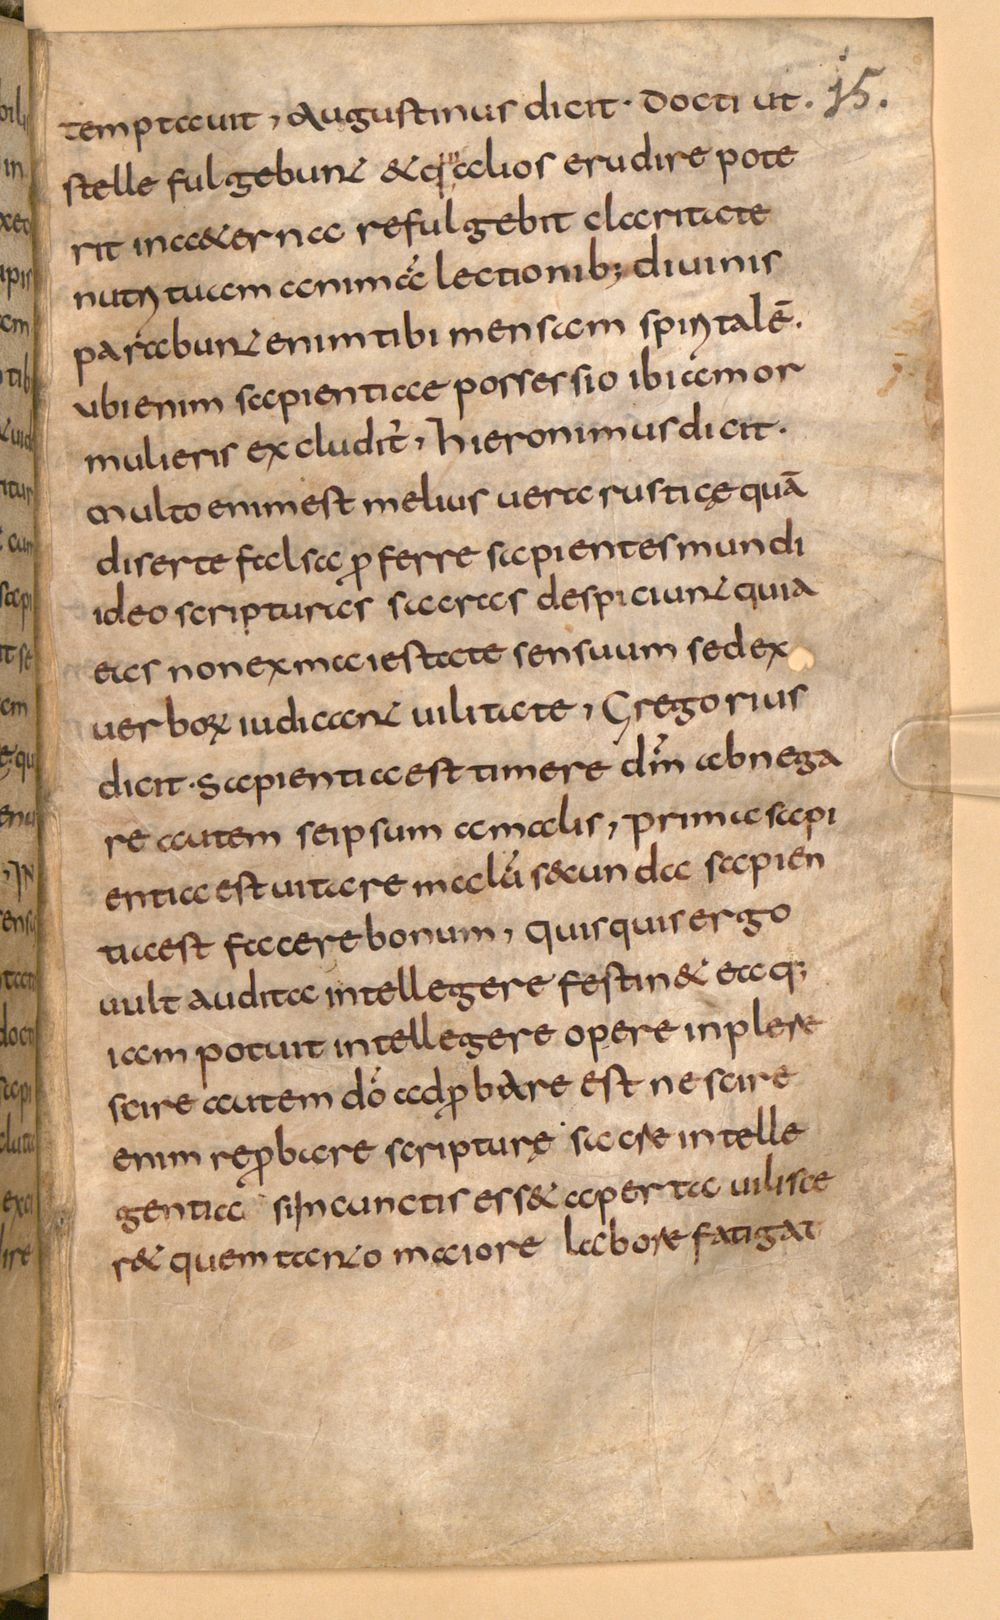 temptauit, Augustinus dicit. Docti ut. 15.
stelle fulgebunt & qui alios erudire pote
rit in aeterna refulgebit claritate
nutri tuam animā lectionib; diuinis
parabunt enim tibi mensam spiritalē.
ubi enim sapientiae possessio ibi amor
mulieris excludit̄, hieronimus dicit.
Multo enim est melius uera rusticę quā
diserte falsa ꝓferre sapientes mundi
ideo scripturas sacras despiciunt quia
eas non ex maiestate sensuum sed ex
uerboꝝ iudicant uilitate, Gregorius
dicit. Sapientia est timere dm̄ abnega
re autem seipsum a malis, prima sapi
entia est uitare mala secunda sapien
tia est facere bonum, quisquis ergo
uult audita intellegere festin& ea q;
iam potuit intellegere opere inplere
scire autem dō adꝓbare est nescire
enim reꝓbare scripturę sacre intelle
gentia si in cunctis ess& aperta uilisce
r& quem tanto maiore labore fatigat